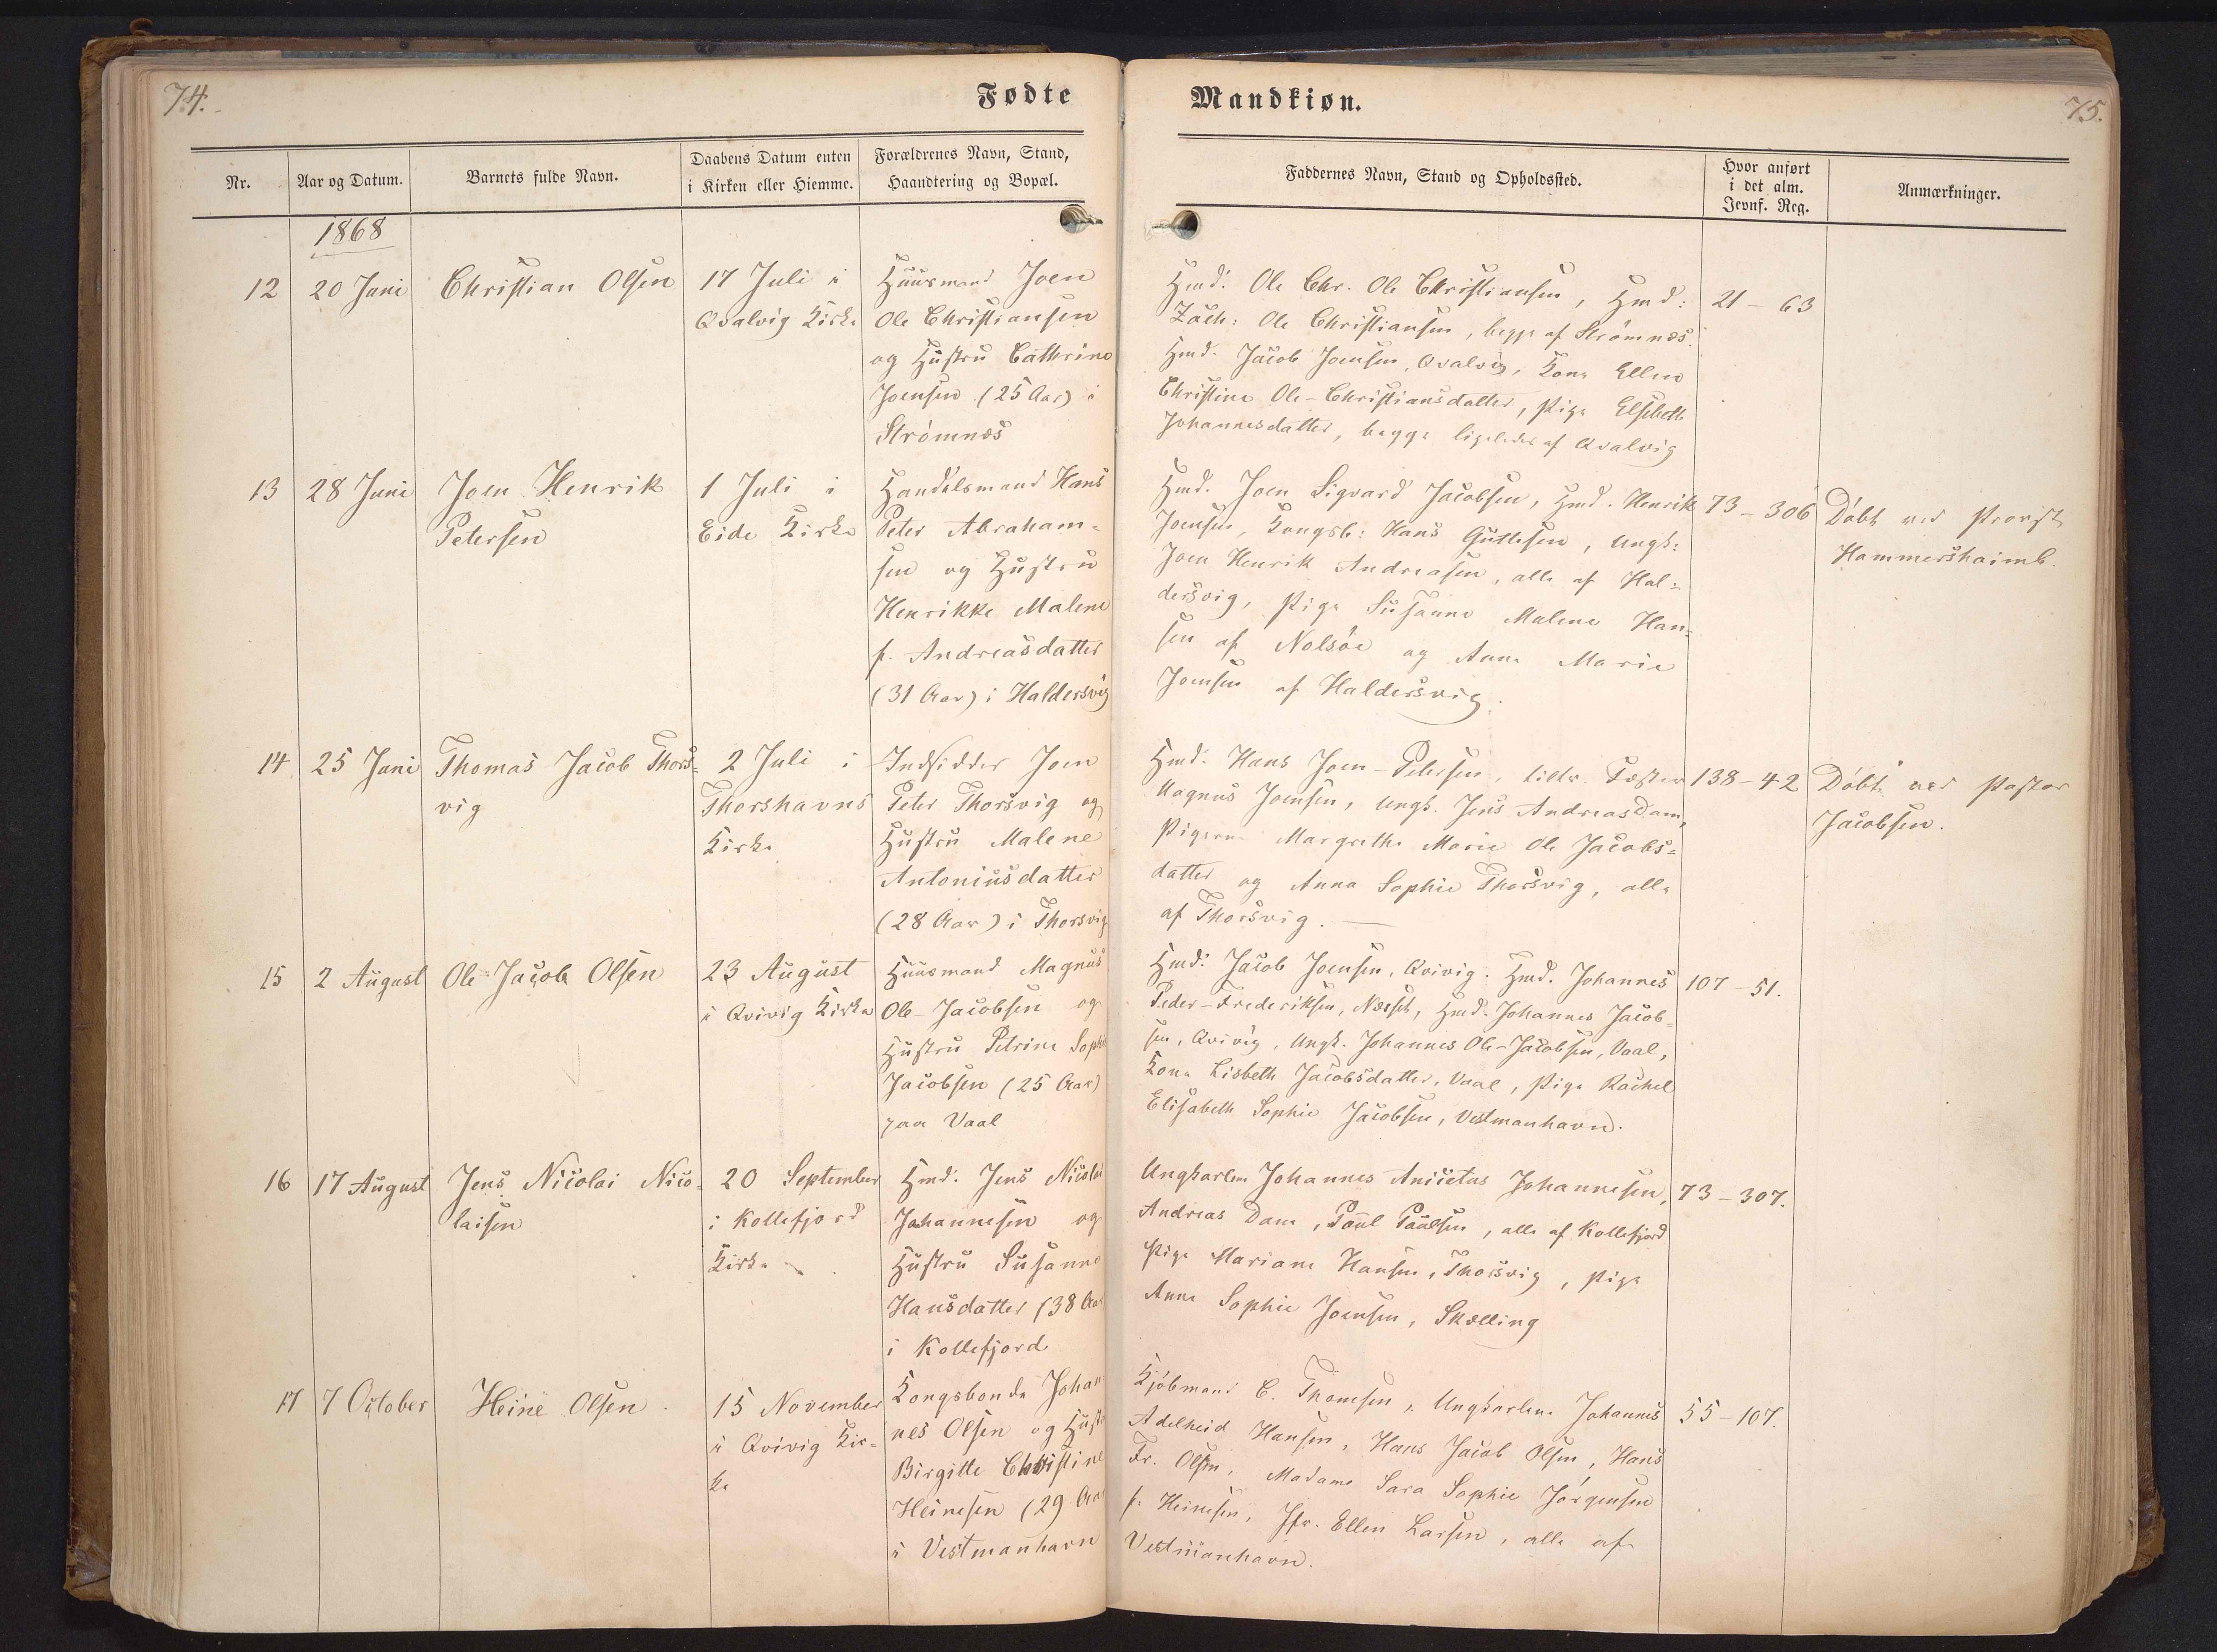 74.
Fødte
Nr.
Aar og Datum.
Barnets fulde Navn.
Daabens Datum enten
i Kirken eller Hiemme.
Forældrenes Navn, Stand,
Haandtering og Bopæl.
1868
12
20 Juni
Christian Olsen
17 Juli i
Qvalvig Kirke
Huusmand Joen
Ole Christiansen
og Hustru Cathrine
Joensen (25 Aar) i
Strömnæs
13
28 Juni
Joen Henrik
Petersen
1 Juli i
Eide Kirke
Handelsmand Hans
Peter Abraham-
sen og Hustru
Henrikke Malene
f. Andreasdatter
(31 Aar) i Haldersvig
14
25 Juni
Thomas Jacob Thors-
vig
2 Juli i
Thorshavns
Kirke
Indsidder Joen
Peter Thorsvig og
Hustru Malene
Antoniusdatter
(28 Aar) i Thorsvig
15
2 August
Ole Jacob Olsen
23 August
i Qvivig Kirke
Huusmand Magnus
Ole-Jacobsen og
Hustru Petrine Sophie
Jacobsen (25 Aar)
paa Vaal
16
17 August
Jens Nicolai Nico-
laisen
20 September
i Kollefjord
Kirke
Hmd. Jens Nicolai
Johannesen og
Hustru Susanne
Hansdatter (38 Aar
i Kollefjord
17
7 October
Heine Olsen
15 November
i Qvivig Kir-
ke
Kongsbonde Johan
nes Olsen og Hustr
Birgitte Christine
Heinesen (29 Aar
i Vestmanhavn
Mandkiøn.
75.
Faddernes Navn, Stand og Opholdssted.
Hvor anført
i det alm.
Jevnf. Reg.
Anmærkninger.
Hmd. Ole Chr. Ole Christiansen, Hmd:
Zach: Ole Christiansen, begge af Strömnæs.
Hmd. Jacob Joensen, Qvalvig, Kone Ellen
Christine Ole-Christiansdatter, Pige Elsebeth
Johannesdatter, begge ligeledes af Qvalvig
21 - 63
Hmd. Joen Sigvard Jacobsen, Hmd. Henrik
Joensen, Kongsb: Hans Guttesen, Ungk:
Joen Henrik Andreasen, alle af Hal-
dersvig, Pige Susanne Malene Han-
sen af Nolsöe og Anne Marie
Joensen af Haldersvig.
73 - 306
Döbt ved Provst
Hammershaimb.
Hmd. Hans Joen-Petersen, Fæster
Magnus Joensen, Ungk. Jens Andreas Dam,
Pigerne Margrethe Marie Ole Jacobs-
datter og Anna Sophie Thorsvig, alle
af Thorsvig.
138 - 42
Döbt ved Pastor
Jacobsen.
Hmd. Jacob Joensen, Qvivig. Hmd. Johannes
Peder-Frederiksen, Næsset, Hmd. Johannes Jacob-
sen, Qvivig, Ungk. Johannes Ole-Jacobsen, Vaal,
Kone Lisbeth Jacobsdatter, Vaal, Pige Rachel
Elisabeth Sophie Jacobsen, Vestmanhavn.
107 - 51.
Ungkarlene Johannes Anicetus Johannesen,
Andreas Dam, Poul Poulsen, alle af Kollefjord
Pige Mariane Hansen, Thorsvig, Pige
Anne Sophie Joensen, Skælling
73 - 307.
Kjöbmand C. Thomsen, Ungkarlene Johannes
Adelheid Hansen, Hans Jacob Olsen, Hans
Fr. Olsen, Madame Sara Sophie Jörgensen
f. Heinesen, Jfr. Ellen Larsen, alle af
Vestmanhavn.
55 - 107.